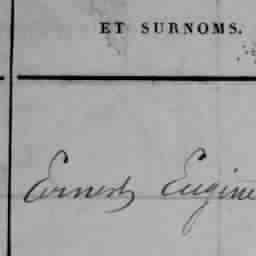 ET SURNOMS.
Ernest Eugine